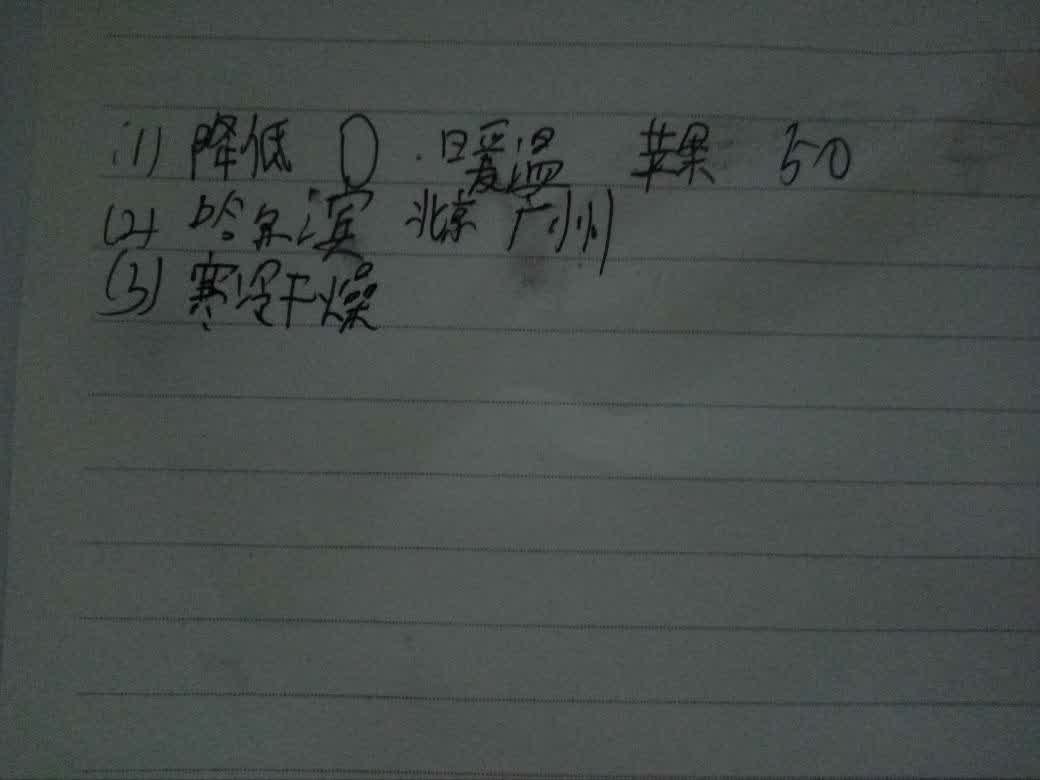 (1) 降低 0 暖温 苹果 50
(2) 哈尔滨 北京 广州
(3) 寒冷干燥